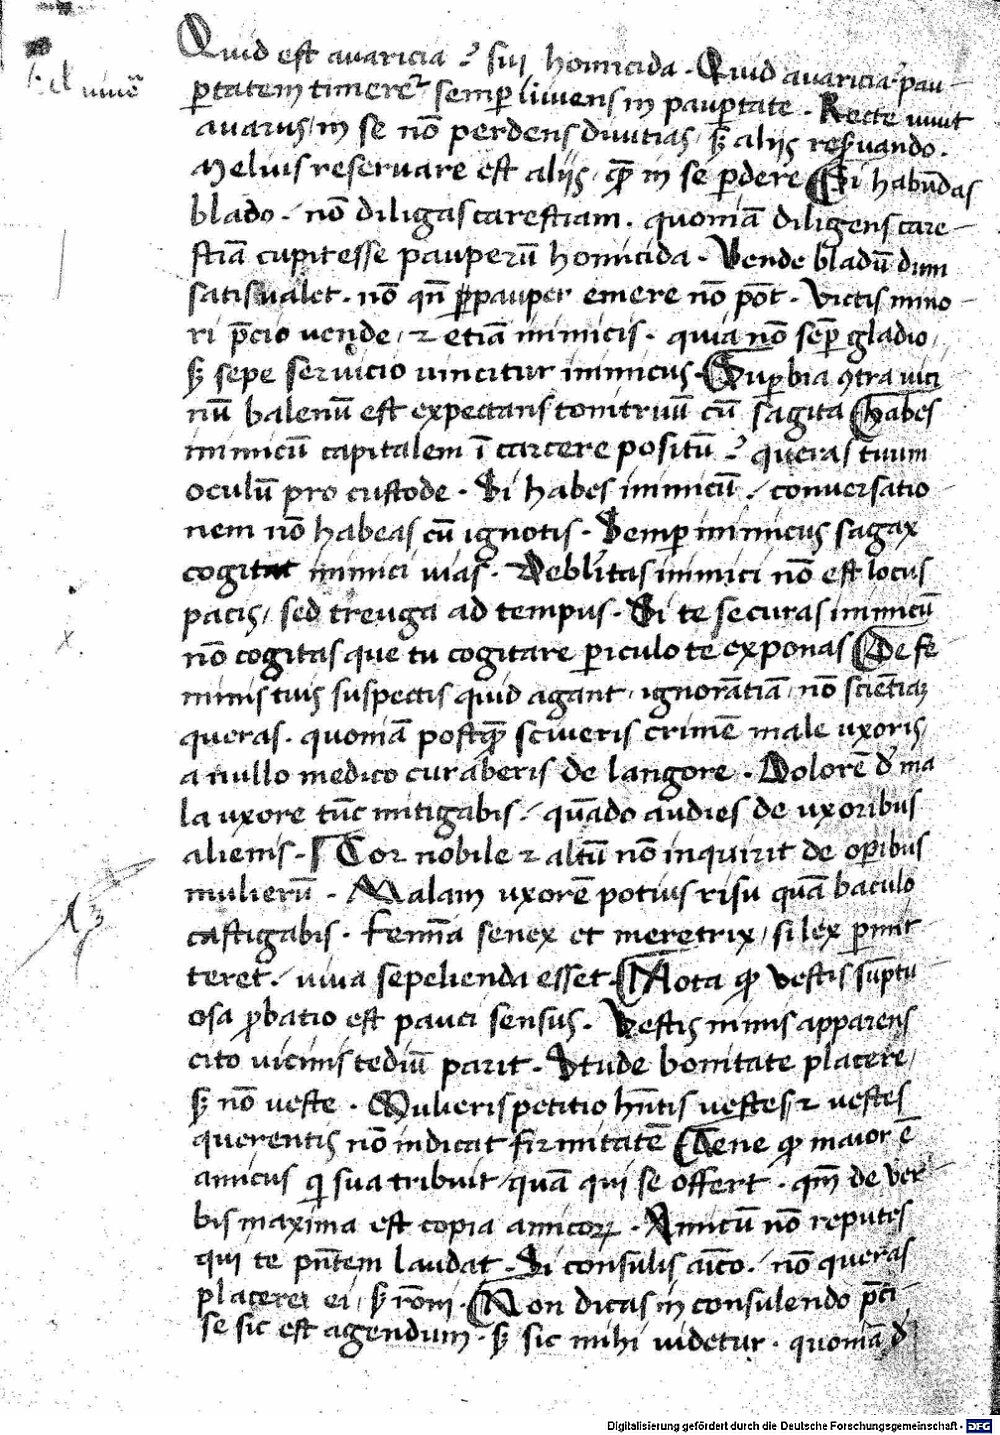 Quid est auaricia ? sui homicida . Quid auaricia ? pau
ꝑtatem timere semꝑ viuens in pauꝑtate . Recte viuit
auarus in se nō perdens diuitias sꝫ aliis reẜuando .
Melius reseruare est aliis qꝫ in se ꝑdere Si habūdas
blado / nō diligas carestiam . quoniā diligens care
stiā cupit esse pauperū homicida . Vende bladū dum
satis valet . nō qn̄ ꝑ pauper emere nō pōt . Vicīs mino
ri p̄cio vende / ⁊ etiā inimicis . quia nō semp̄ gladio /
sꝫ sepe seruicio vincitur inimicus . Suꝑbia ꝯtra vici
nū balenū est expectans tonitruū cū sagita Habes
inimicū capitalem ī carcere positū ? queras tuum
oculū pro custode . Si habes inimicū / conuersatio
nem nō habeas cū ignotis . Semꝑ inimicus sagax
cogitat inimici vias . Deblitas inimici nō est locus
pacis / sed treuga ad tempus . Si te securas inimicū
nō cogitas que tu cogitare ꝑiculo te exponas De fe
minis tuis suspectis quid agant / ignorātiā / nō sciētiā
queras . quoniā postqꝫ sciueris crimē male vxoris
a nullo medico curaberis de langore . Dolorē d' ma
la vxore tūc mitigabis / quādo audies de vxoribus
alienis . Cor nobile ⁊ altū nō inquirit de oꝑibus
mulierū . Malam vxorē potius risu quā baculo
castigabis . Femīa senex et meretrix / si lex ꝑmit
teret / viua sepelienda esset . Nota ꝙ vestis sūptu
osa ꝓbatio est pauci sensus . Vestis nimis apparens
cito vicinis tediū parit . Stude bonitate placere /
sꝫ nō veste . Mulieris petitio hn̄tis vestes / ⁊ vestes
querentis nō indicat firmitatē Tene ꝙ maior ē
amicus q̄ sua tribuit / quā qui se offert . qm̄ de ver
bis maxima est copia amicoꝝ . Amicū nō reputes
qui te pn̄tem laudat . Si consulis aīco / nō queras
placere ei / sꝫ rōni . Non dicas in consulendo p̄ci
se sic est agendum . sꝫ sic mihi videtur . quoniā d'
Digitalisierung gefördert durch die Deutsche Forschungsgemeinschaft - DFG